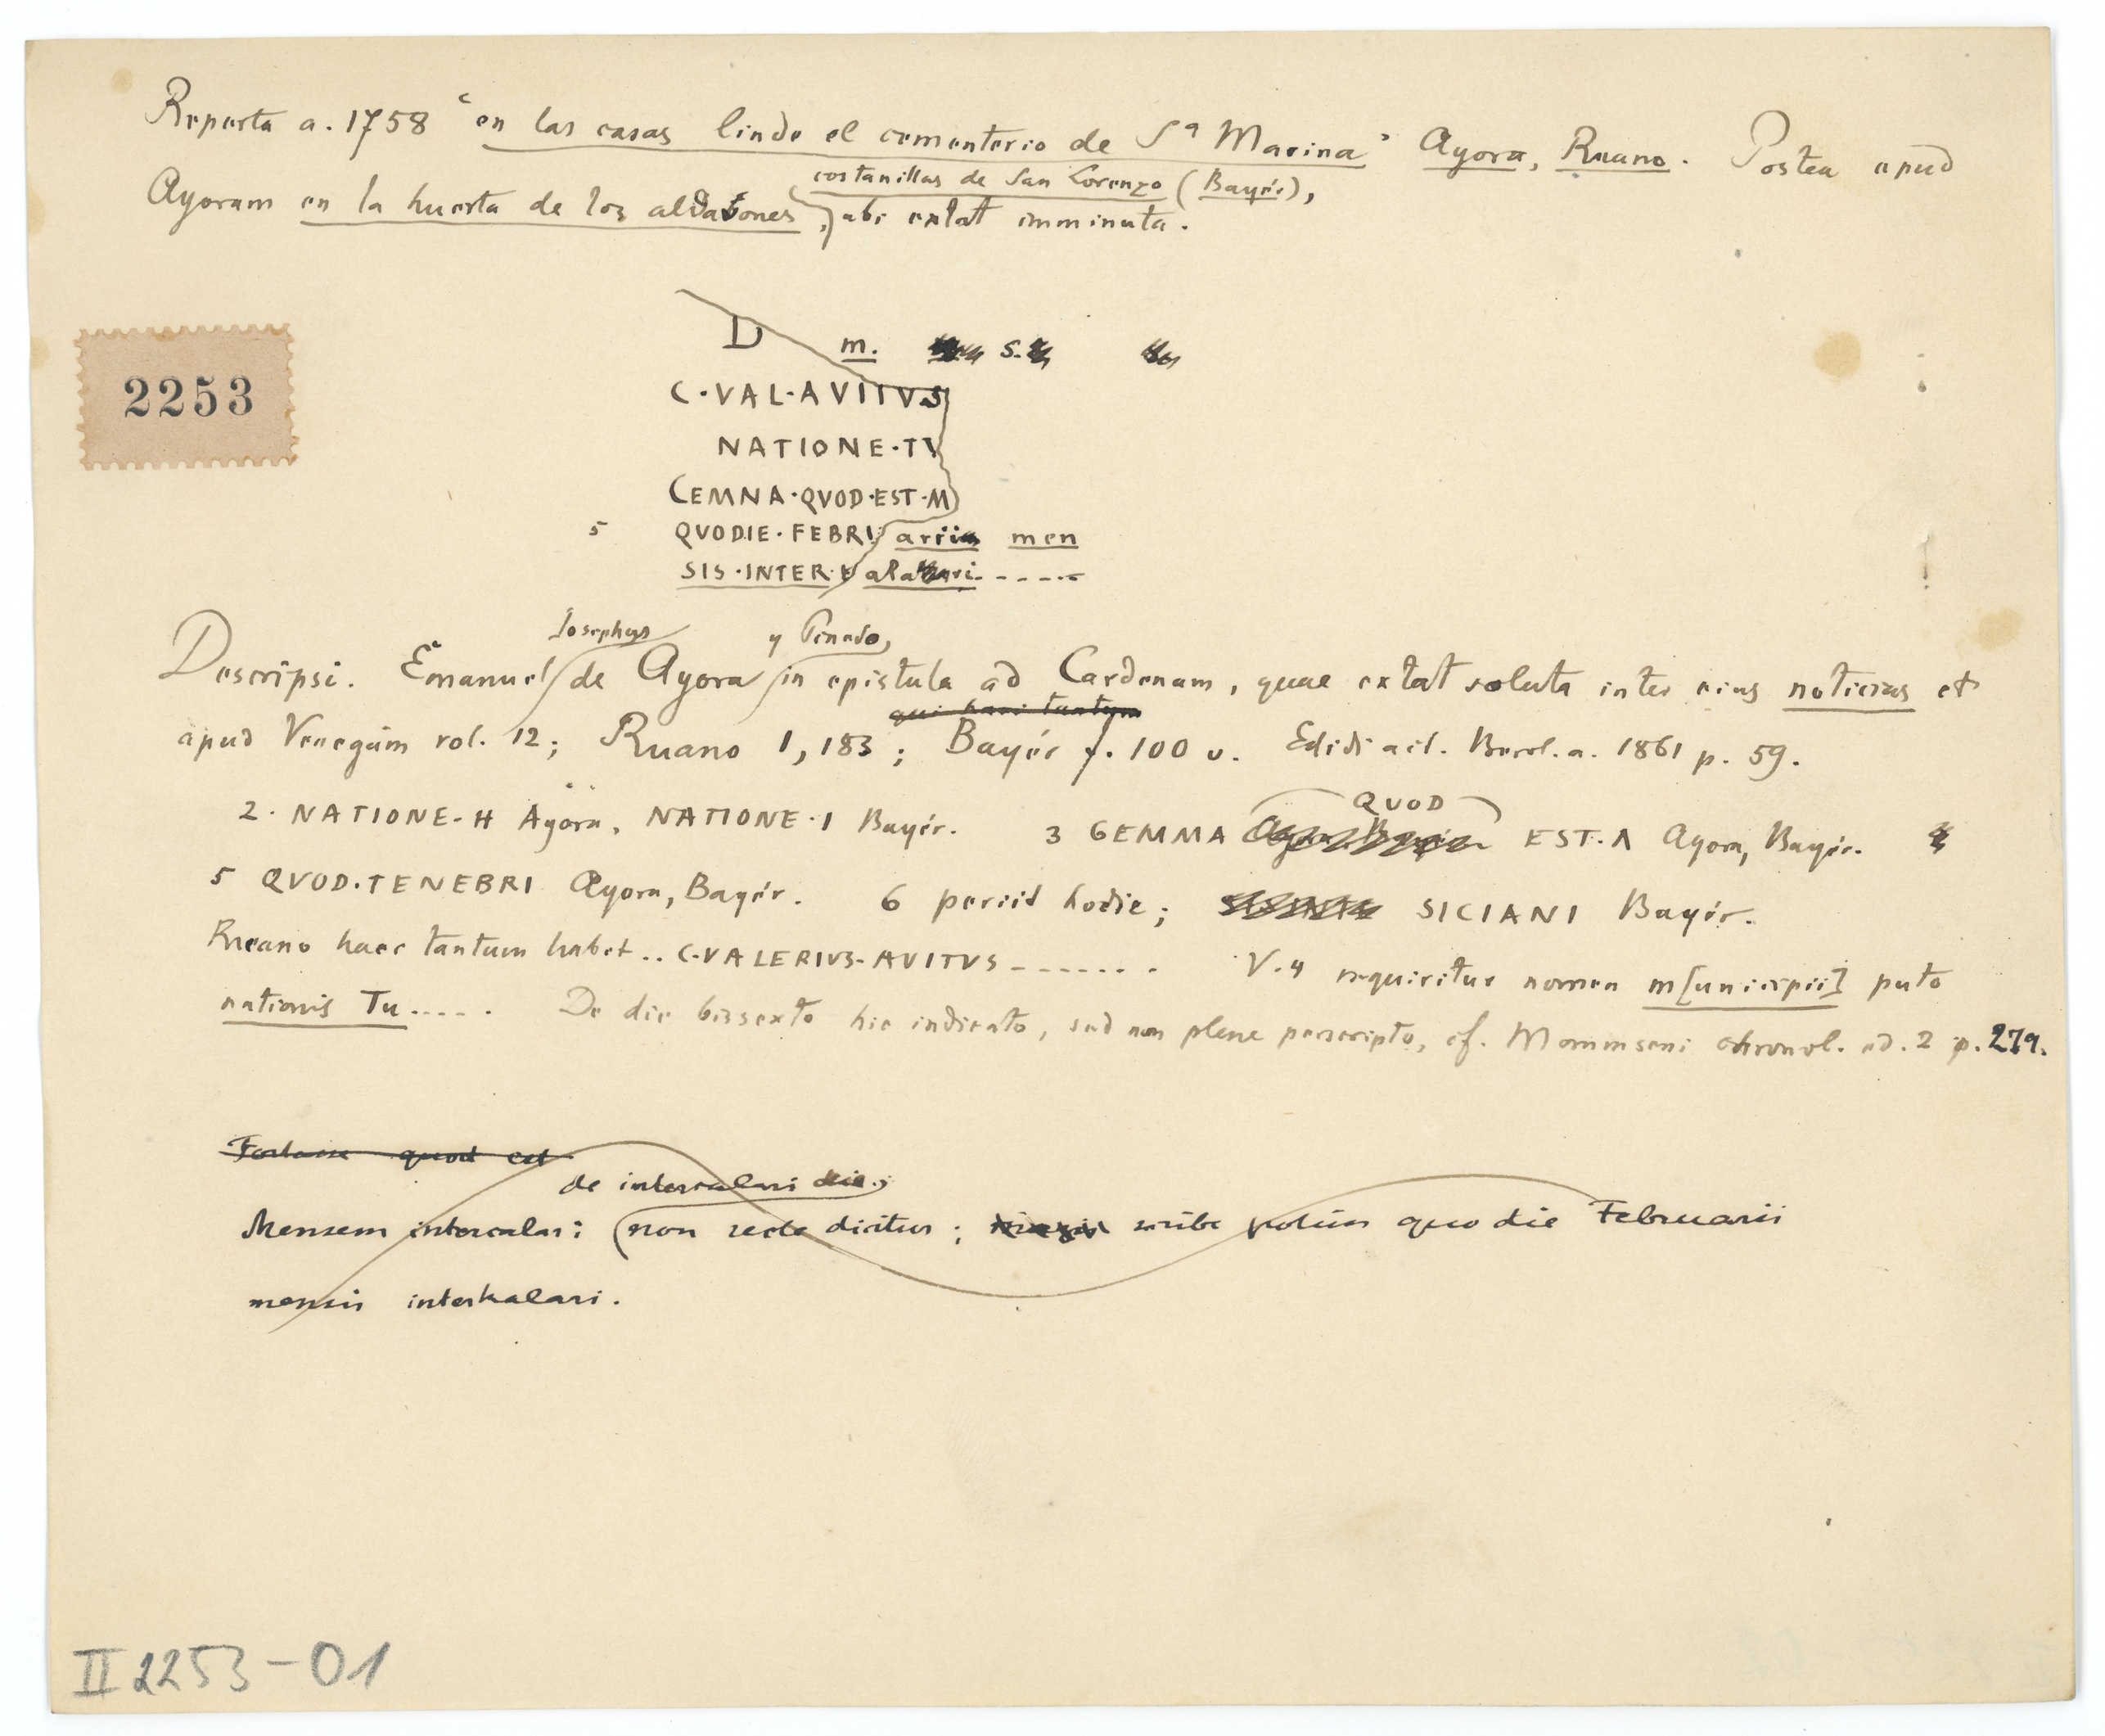 Reperta a. 1758 "en las casas linde el cementerio de Sª Marina" Ayora, Ruano. Postea apud
costanillas de San Lorenzo (Bayér),
Ayoram en la huerta de los aldabones, ubi extat imminuta.
2253
D m. S.
C·VAL·AVITVS
NATIONE·TV
CEMNA·QVOD·EST·M
5 QVODIE·FEBRV arii men
SIS·INTER·K alari.-----
Iosephus y Pinedo,
Descripsi. Emanuel de Ayora in epistula ad Cardenam, quae extat soluta inter eius noticias et
qui hani tantum
apud Venegam vol. 12; Ruano 1, 183; Bayér f. 100 v. Edidi act. Berol. a. 1861 p. 59.
QUOD
2. NATIONE-H Ayora, NATIONE·I Bayér. 3 GEMMA EST·Λ Ayora, Bayér.
5 QVOD·TENEBRI Ayora, Bayér. 6 periit hodie; SICIANI Bayér.
Ruano haec tantum habet .. C·VALERIVS·AVITVS ------- V. 4 requiritur nomen m[unicipii] puto
nationis Tu..... De die bissexto hic indicato, sed non plene perscripto, cf. Mommseni chronol. ed. 2 p. 279.
Fortasse quod est
de intercalari die;
Mensem intercalari non recte dicitur; scribe potius quo die Februarii
mensis interkalari.
II 2253-01